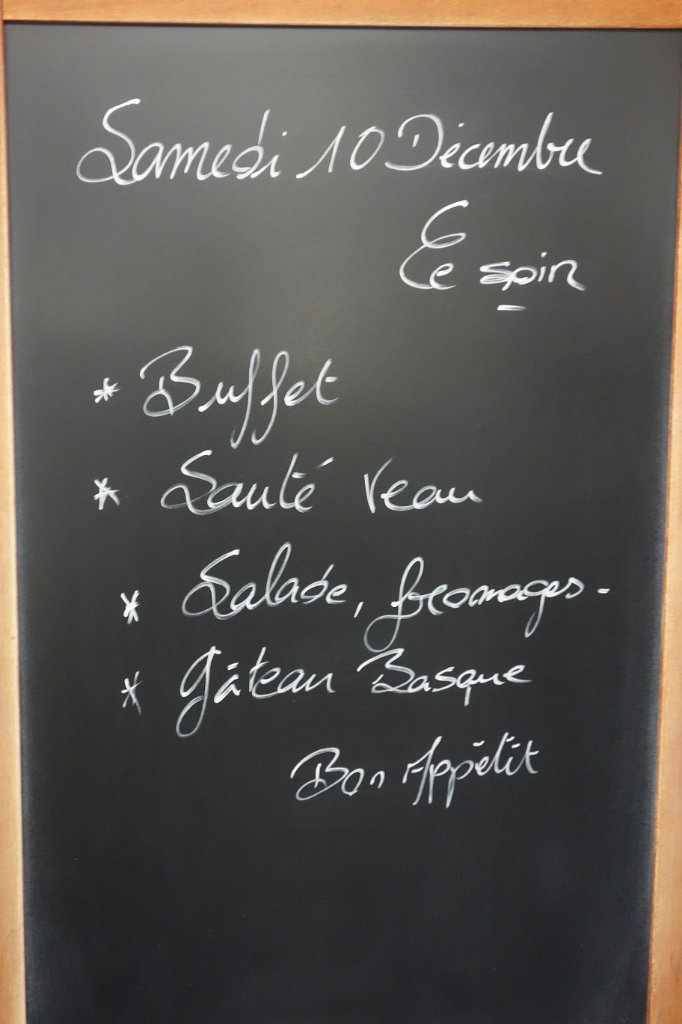 Samedi 10 Décembre
Ce soir
* Buffet
* Sauté Veau
* Salade, fromages.
* Gâteau Basque
Bon Appétit